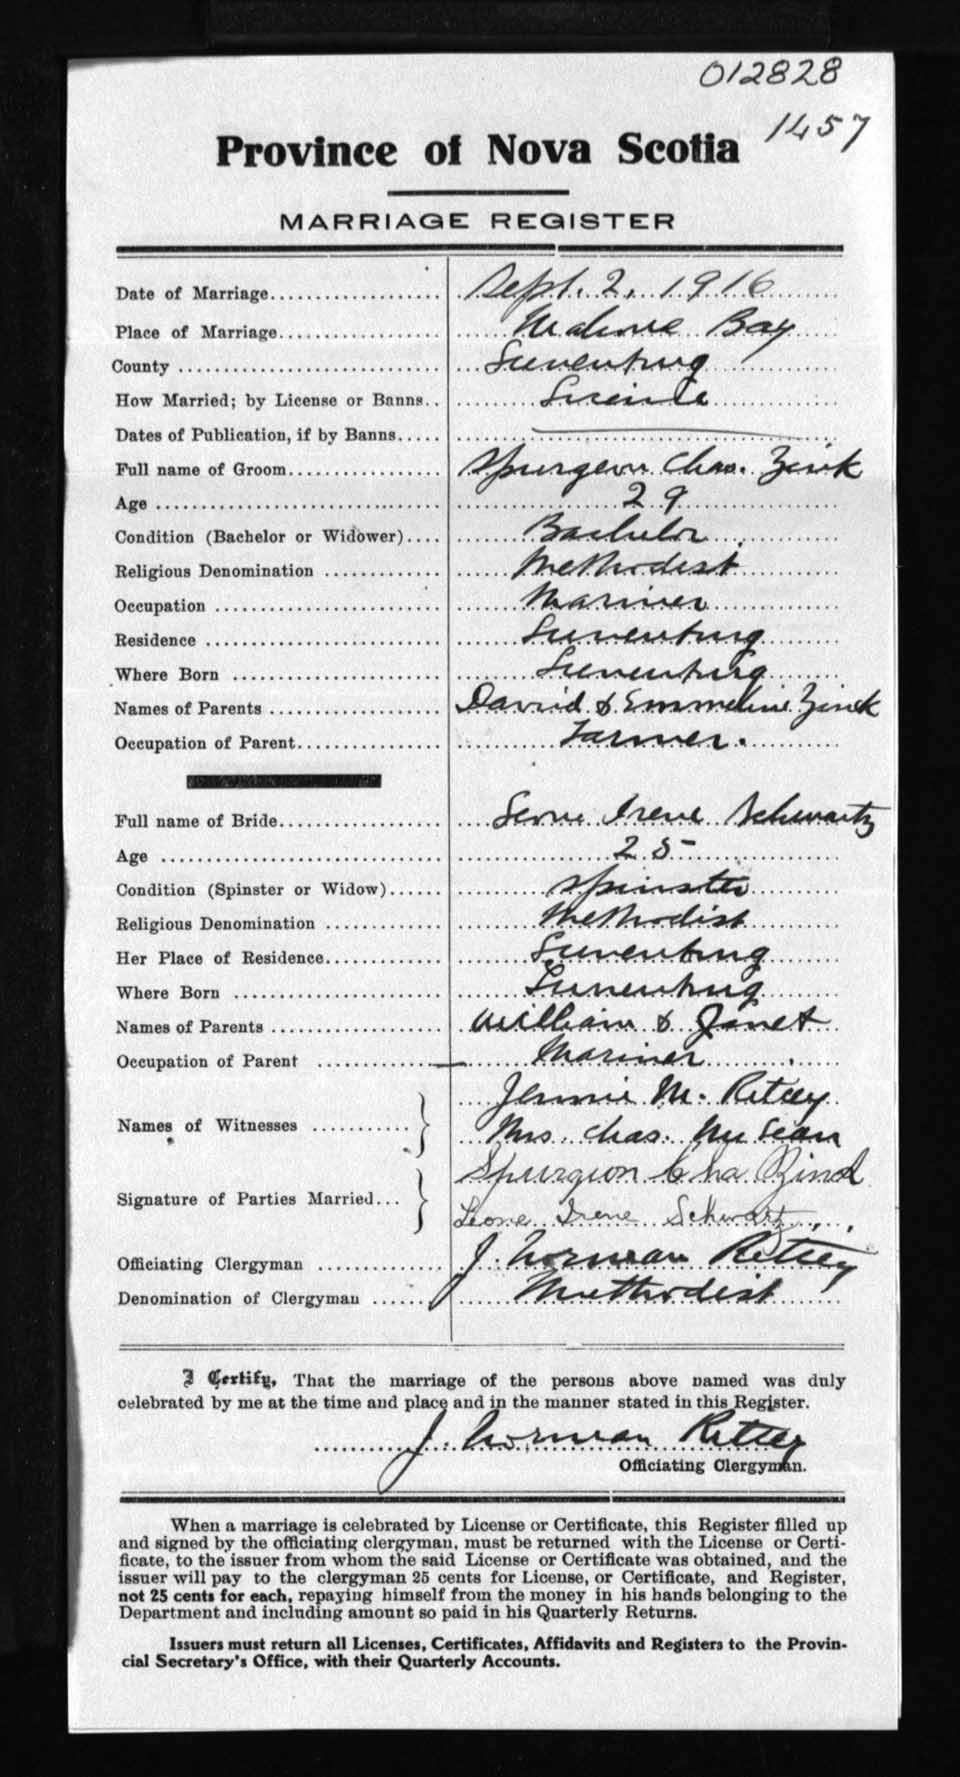 012828
1457
Province of Nova Scotia
MARRIAGE REGISTER
Date of Marriage.................... Sept. 2, 1916
Place of Marriage................... Mahone Bay
County ............................. Lunenburg
How Married; by License or Banns.. License
Dates of Publication, if by Banns.....
Full name of Groom.................. Spurgeon Chas. Zink
Age ................................ 29
Condition (Bachelor or Widower).... Bachelor
Religious Denomination ............. Methodist
Occupation ......................... Mariner
Residence .......................... Lunenburg
Where Born ......................... Lunenburg
Names of Parents ................... David & Emmeline Zink
Occupation of Parent................ Farmer.
Full name of Bride.................. Leone Irene Schwartz
Age ................................ 25
Condition (Spinster or Widow)...... Spinster
Religious Denomination ............. Methodist
Her Place of Residence.............. Lunenburg
Where Born ......................... Lunenburg
Names of Parents ................... William & Janet
Occupation of Parent ............... Mariner
Jennie M. Ritcey
Names of Witnesses ...........
Mrs. Chas.
Spurgeon Cha Zink
Signature of Parties Married...
Leone Irene Schwartz
Officiating Clergyman .............. J. Norman Ritcey
Denomination of Clergyman ...... Methodist
I Certify, That the marriage of the persons above named was duly
celebrated by me at the time and place and in the manner stated in this Register.
J. Norman Ritcey
Officiating Clergyman.
When a marriage is celebrated by License or Certificate, this Register filled up
and signed by the officiating clergyman, must be returned with the License or Certi-
ficate, to the issuer from whom the said License or Certificate was obtained, and the
issuer will pay to the clergyman 25 cents for License, or Certificate, and Register,
not 25 cents for each, repaying himself from the money in his hands belonging to the
Department and including amount so paid in his Quarterly Returns.
Issuers must return all Licenses, Certificates, Affidavits and Registers to the Provin-
cial Secretary's Office, with their Quarterly Accounts.